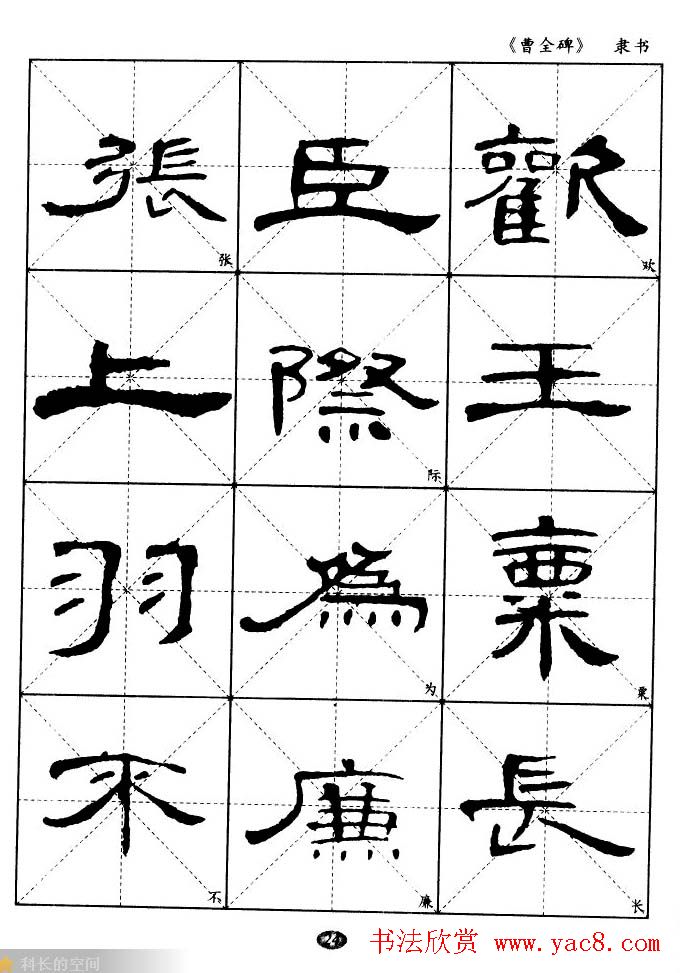 《曹全碑》 隶书
張 臣 歡
张 欢
上 際 王
际
羽 為 粟
为 粟
來 廉 長
不 廉 长
24
书法欣赏 www.yac8.com
科长的空间